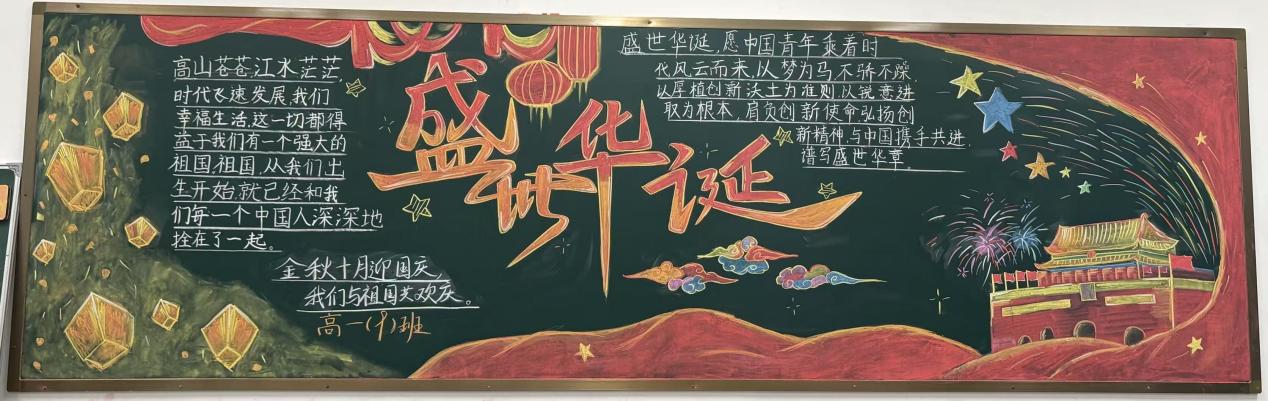 高山苍苍,江水茫茫,
时代飞速发展,我们
幸福生活,这一切都得
益于我们有一个强大的
祖国,祖国,从我们出
生开始,就已经和我
们每一个中国人深深地
拴在了一起。
金秋十月迎国庆,
我们与祖国共欢庆。
高一(9)班
盛世华诞
盛世华诞,愿中国青年乘着时
代风云而来,以梦为马,不骄不躁,
以厚植创新沃土为准则,以锐意进
取为根本,肩负创新使命弘扬创
新精神与中国携手共进,
谱写盛世华章。